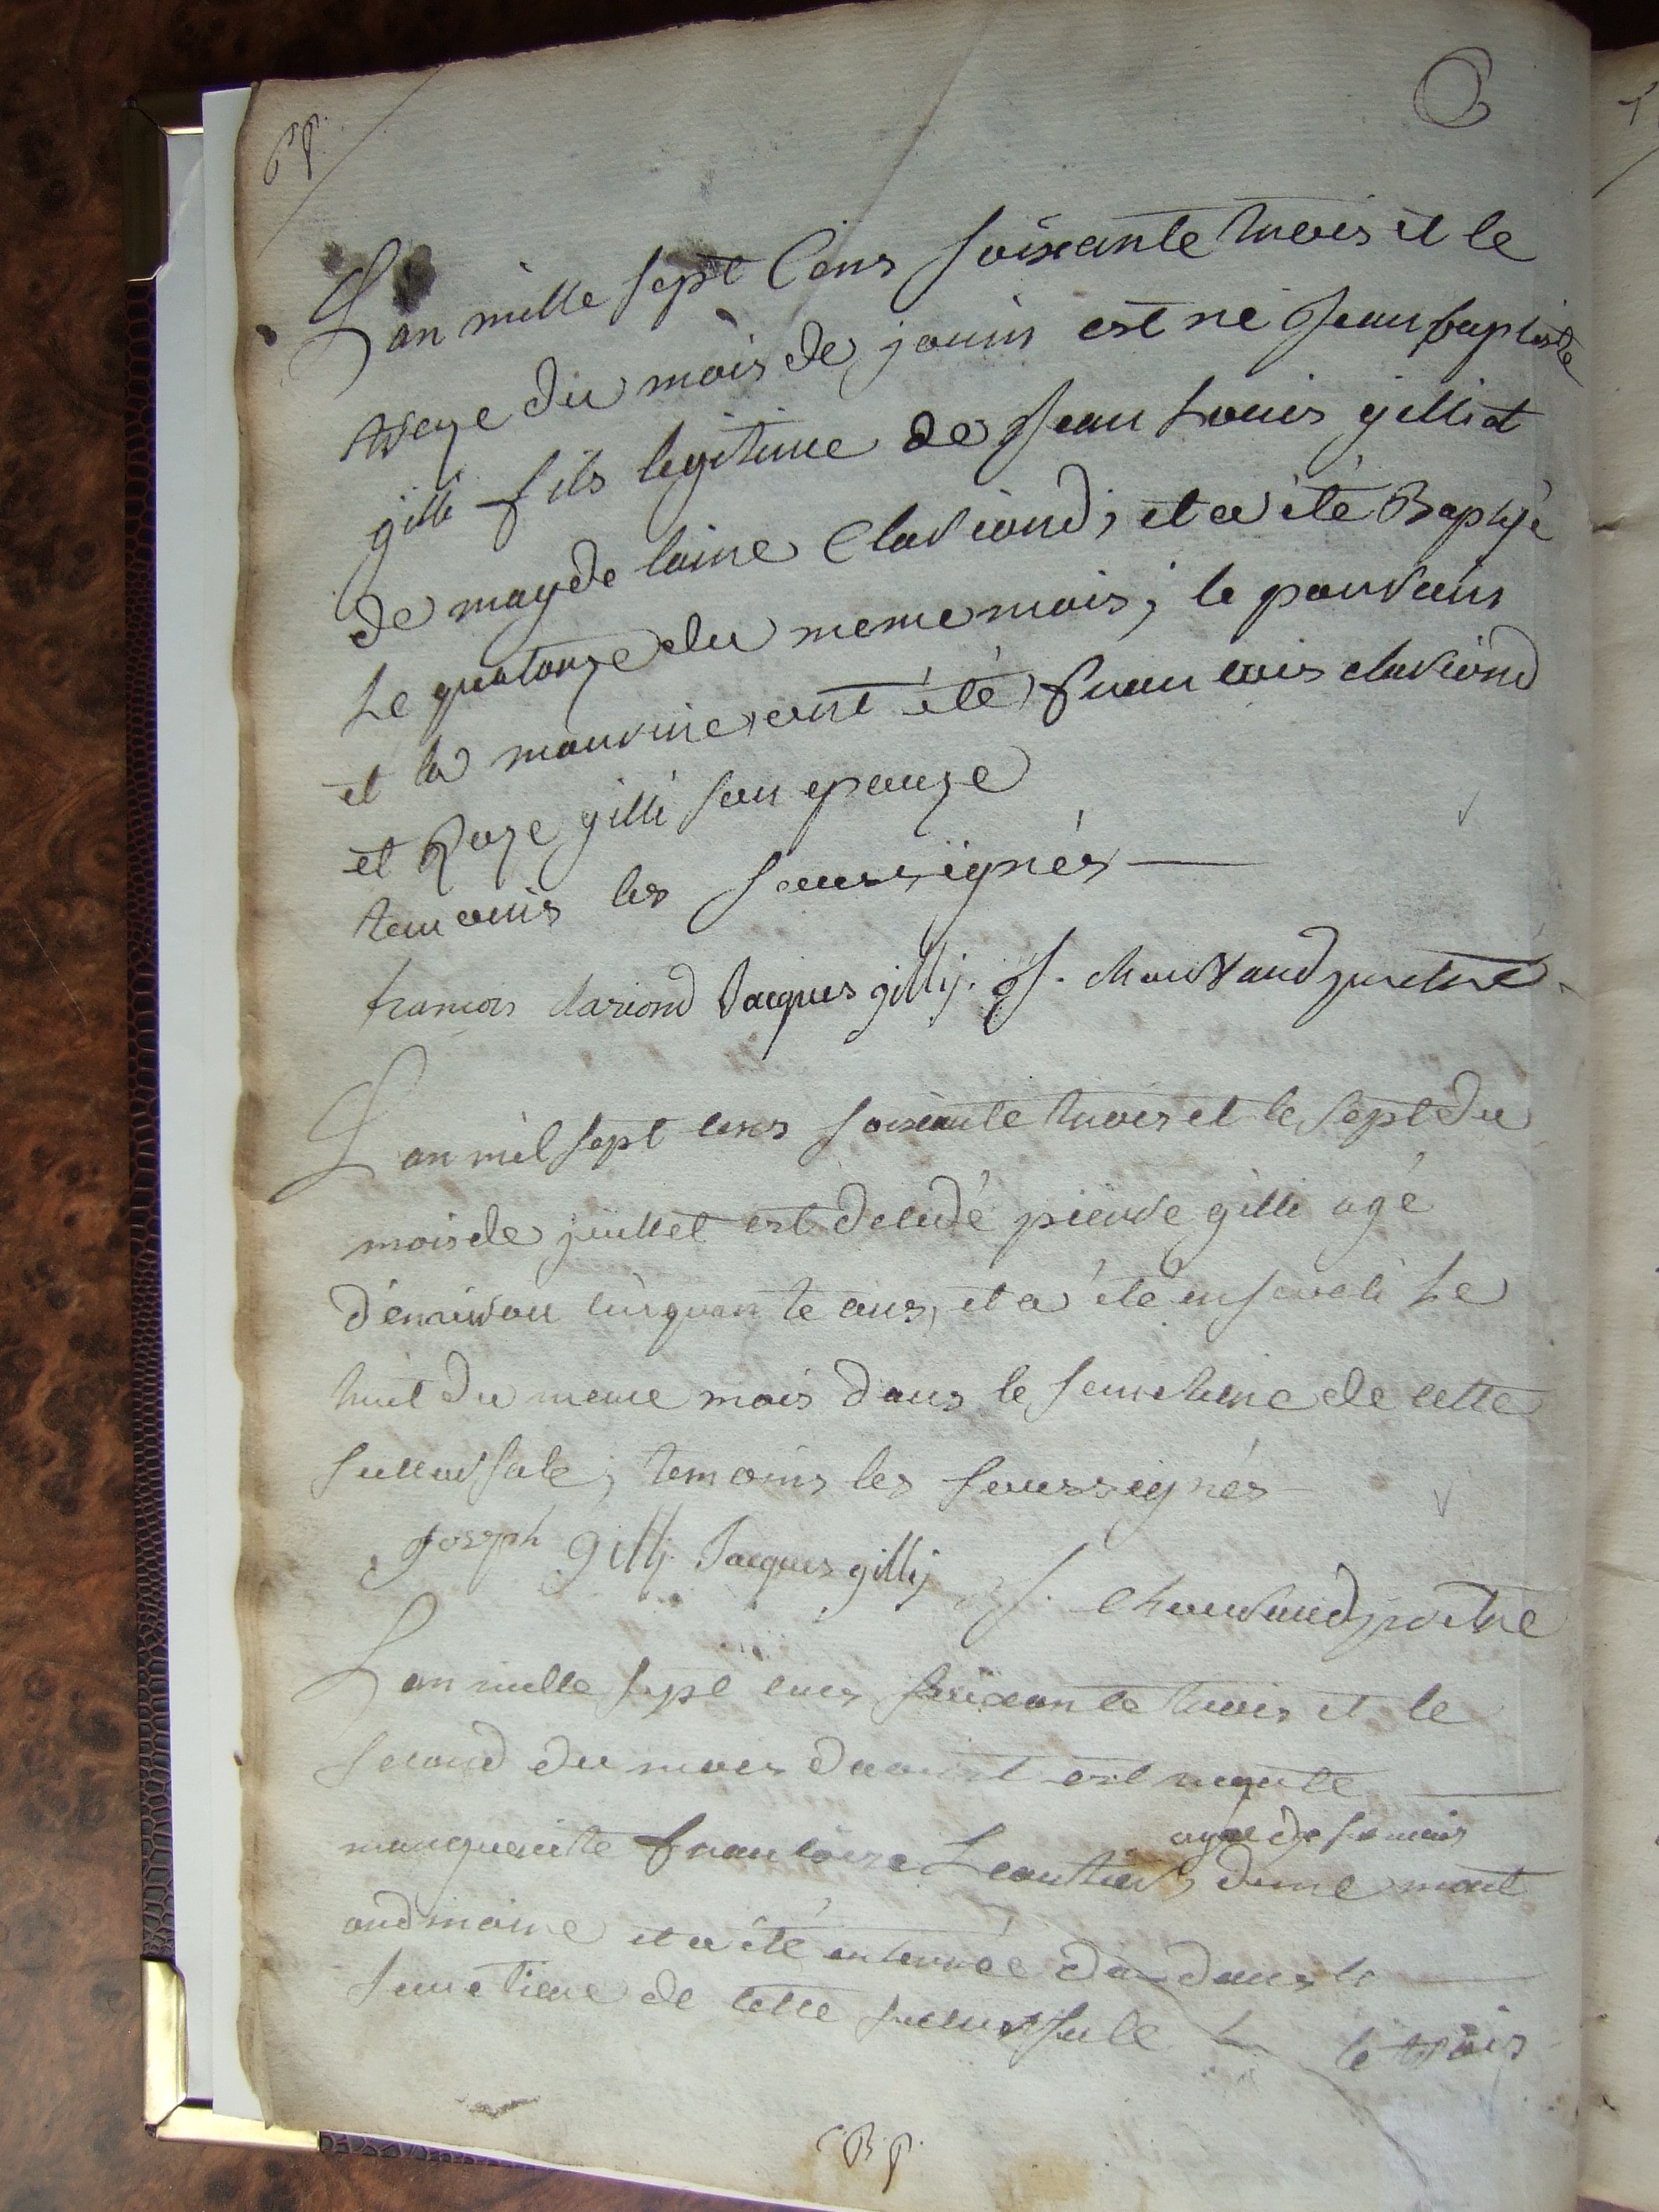 L'an mille sept Cens soixante trois et le
treze du mois de jouin est né Jean baptiste
gilli fils legitime de Jean Louis gilli et
de magdelaine Clariond, et a été Baptisé
Le quatorze du meme mois; le parrain
et la marrine ont été francois clariond
et Roze gilli son epouze
temoins les soussignés
francois clariond Jacques gillij. J. charraud pretre
L'an mil sept cens soixante trois et le sept du
mois de juillet est decedé pierre gilli agé
d'environ cinquante ans, et a été enseveli Le
huit du meme mois dans le semetiere de cette
succursale; temoins les soussignés
Joseph gillj. Jacques gillij J. charraud pretre
L'an mille sept cens soixante trois et le
second du mois daoust est morte
marguerite francoise Leautier, dune mort
agée de six mois
ordinaire et a été enterrée dans le
semetiere de cette succursale le trois
BP.